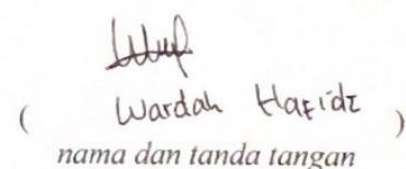 ( Wardah Hafidz )
nama dan tanda tangan